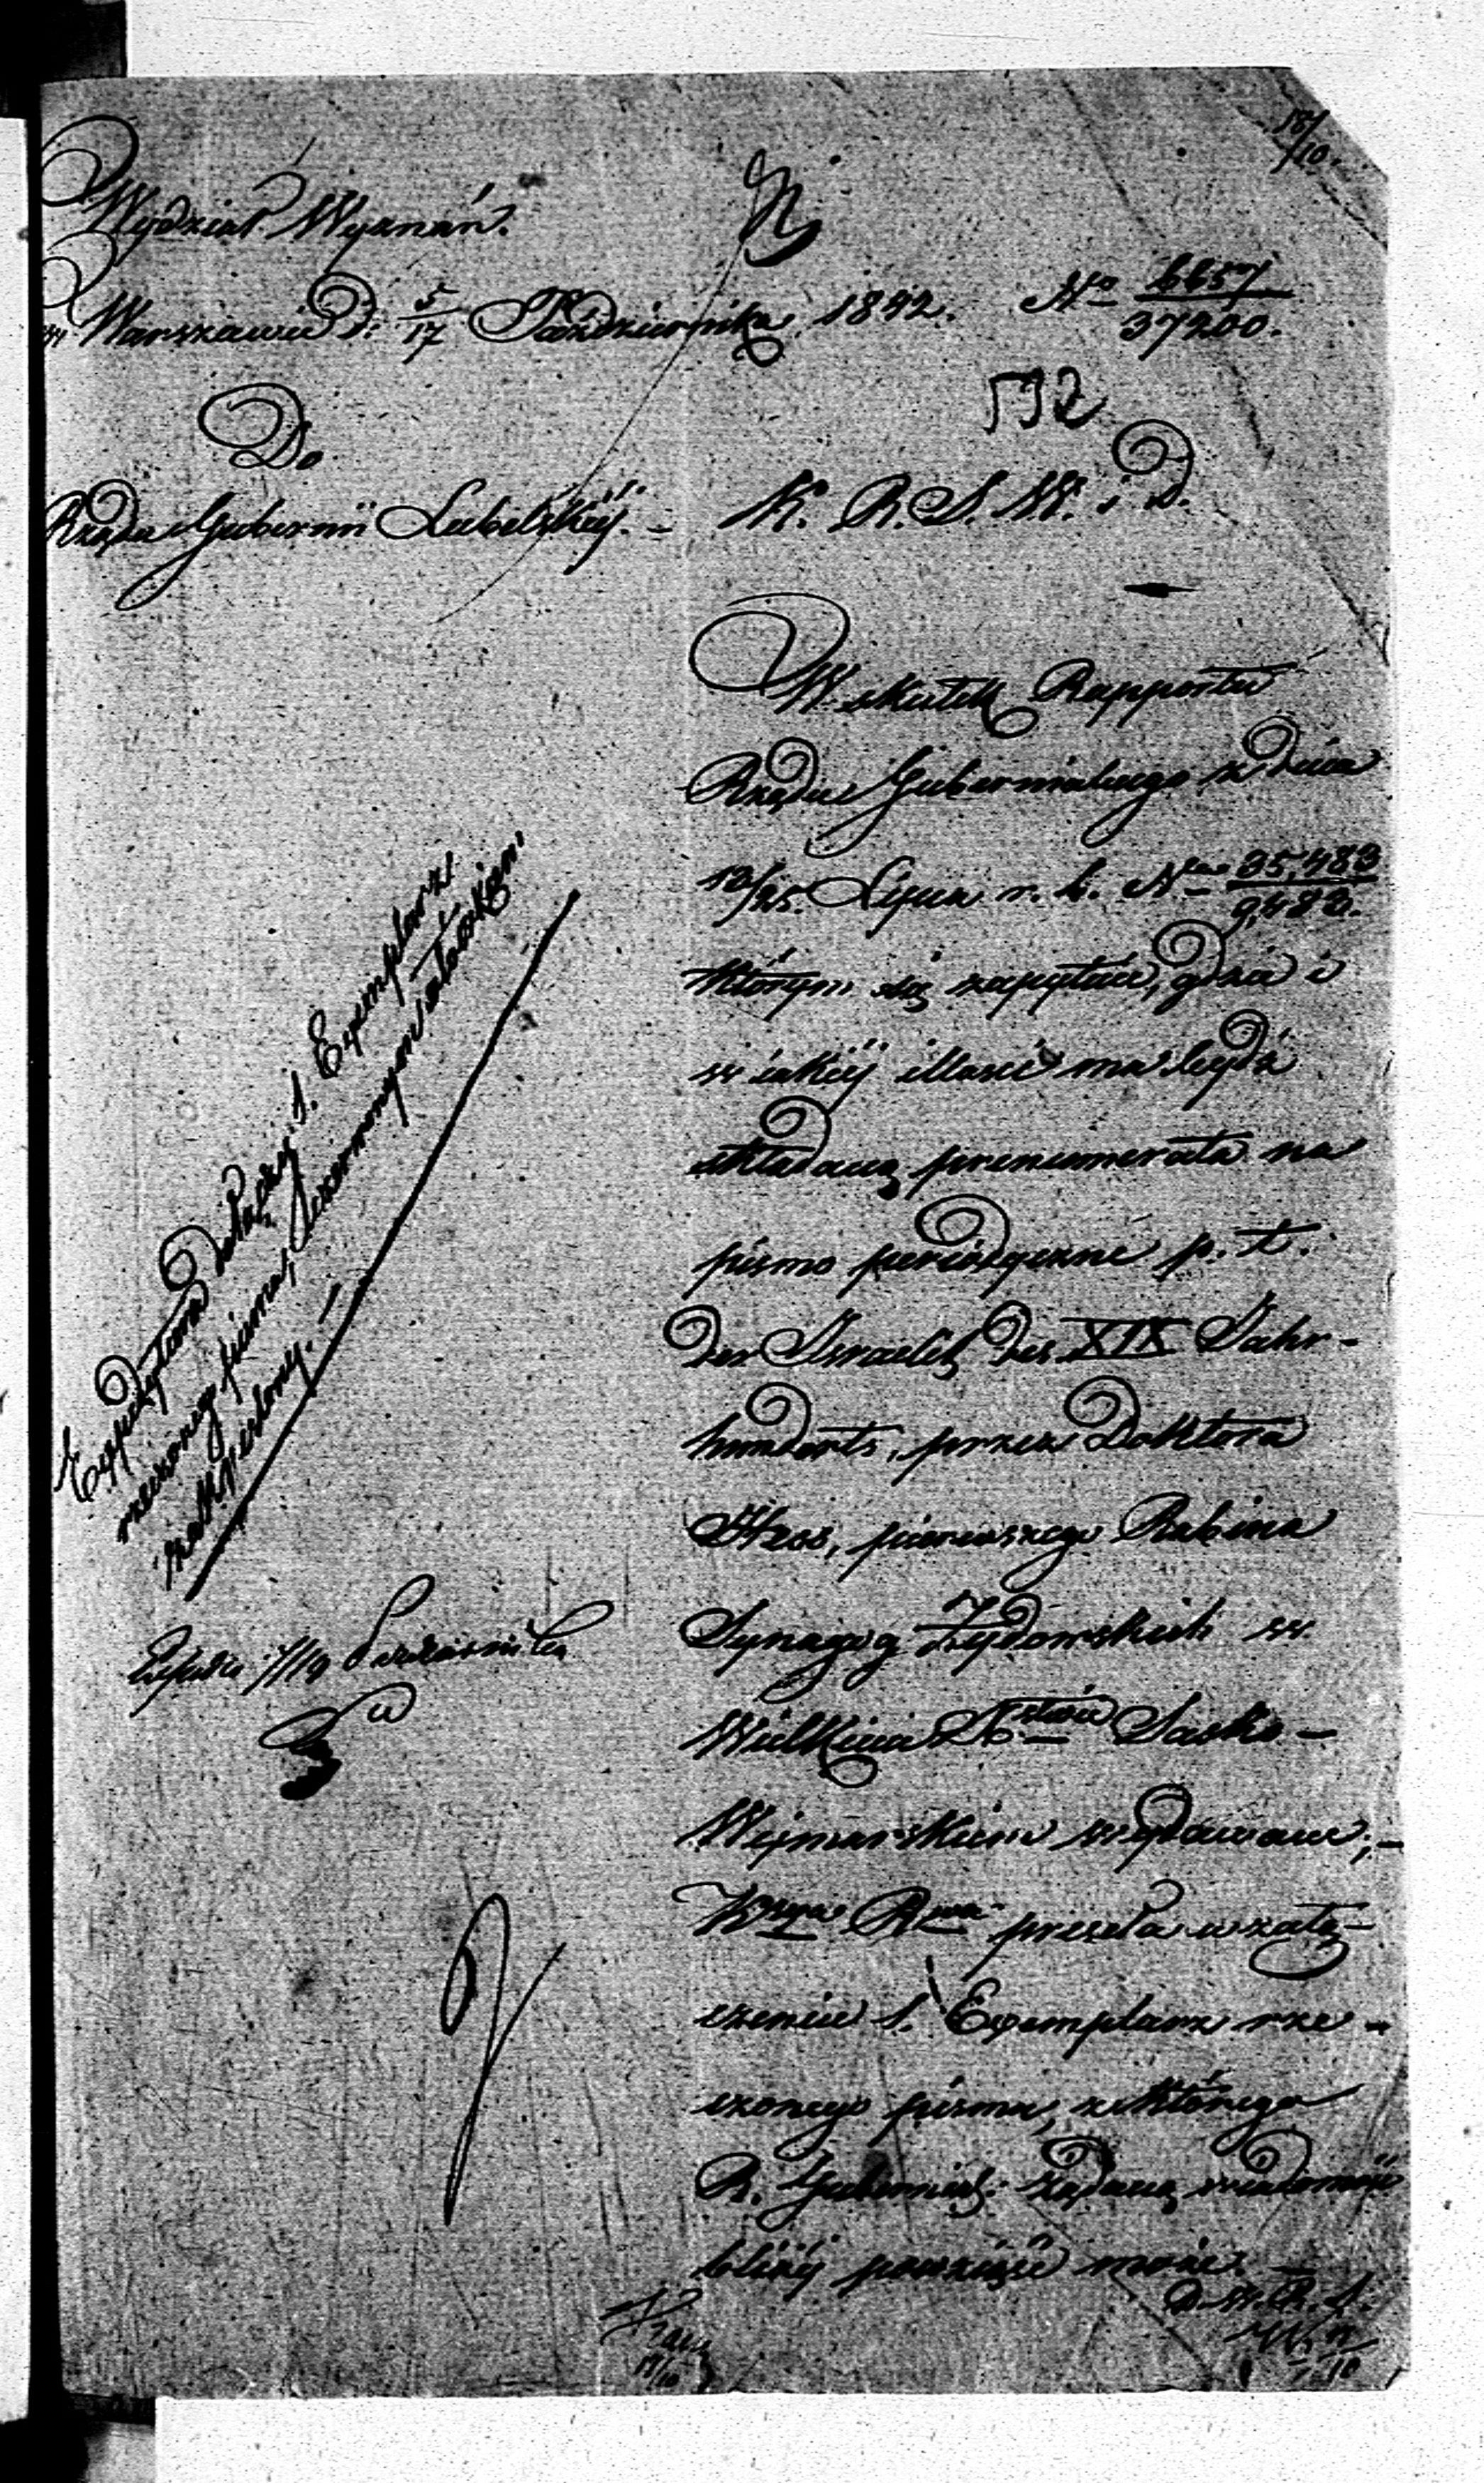 18/10.
Wydział Wyznań.
w Warszawie d: 5/17 Października 1842. No 6657/37200.
Do
Rządu Gubernii Lubelskiéj. –
K. R. S. W. i D.
W skutek Rapportu
Rządu Gubernialnego z dnia
13/25. Lipca r. b. No 35,483/9,483.
którym się zapytuie, gdzie i
w iakiéj illości ma bydź
składaną prenumerata na
pismo peryodyczne p. t.
der Israelit des XIX Jahr–
hunderts, przez Doktora
Hess, pierwszego Rabina
Synagog Żydowskich w
Wielkiem Xstwie Sasko –
Wejmarskiem wydawane; –
Kssya Rwa przesła w załą–
czeniu 1. Exemplarz rze –
czonego pisma, z którego
R. Gubernial: żądaną wiadomość
bliżéj powziąść może. –
D. W. R. S.
17/10
Expedytura dołączy 1. Exemplarz
rzeczonego pisma, czerwonym ołówkiem
zakréślony. –
Expedio 7/19 Października